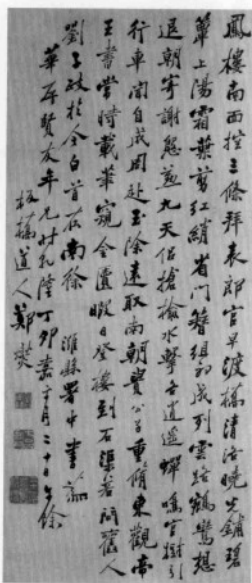 鳳樓南面控三條拜表郎官早渡橋清洛曉光鋪碧
簟上陽霜葉剪紅綃省門簪組初成列雲路鵷鸞想
退朝寄謝慇懃九天侶搶榆水擊各逍遙蟬鳴官樹引
行車聞自成周赴玉除遠取南朝貴公子重脩東觀帝
王書常時載筆窺金匱暇日登樓到石渠若問舊人
劉子政於今白首在南徐 濰縣署中書
華屏賢友年兄時乾隆丁卯嘉平月二十日午餘
板橋道人鄭燮